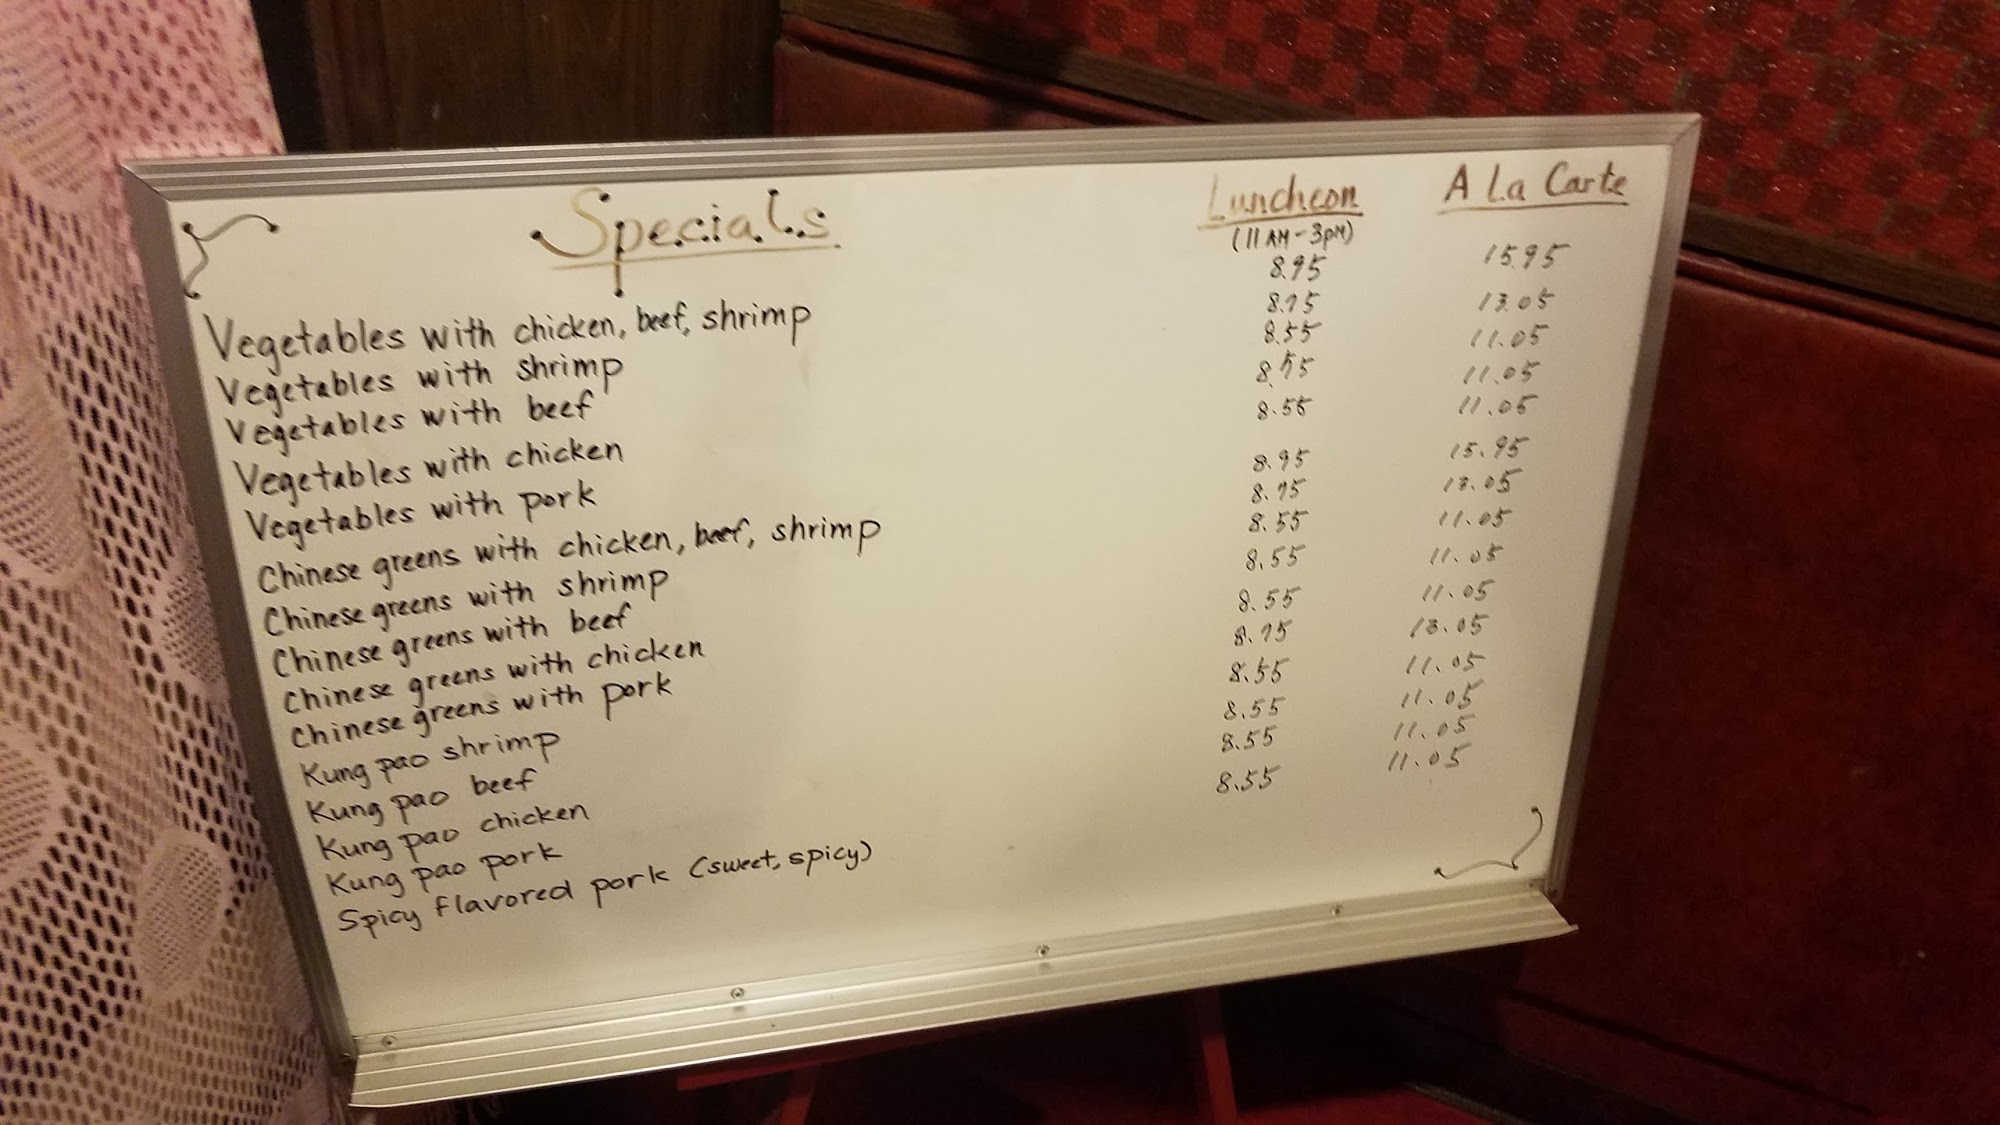 Specials Luncheon A La Carte
(11 AM - 3 PM)
Vegetables with chicken, beef, shrimp 8.95 15.95
Vegetables with shrimp 8.75 13.05
Vegetables with beef 8.55 11.05
Vegetables with chicken 11.05
Vegetables with pork 8.55 11.05
Chinese greens with chicken, beef, shrimp 8.95 15.95
Chinese greens with shrimp 8.75 13.05
Chinese greens with beef 8.55 11.05
Chinese greens with chicken 8.55 11.05
Chinese greens with pork 8.55 11.05
Kung pao shrimp 8.75 13.05
Kung pao beef 8.55 11.05
Kung pao chicken 8.55 11.05
Kung pao pork 8.55 11.05
Spicy flavored pork (sweet, spicy) 8.55 11.05